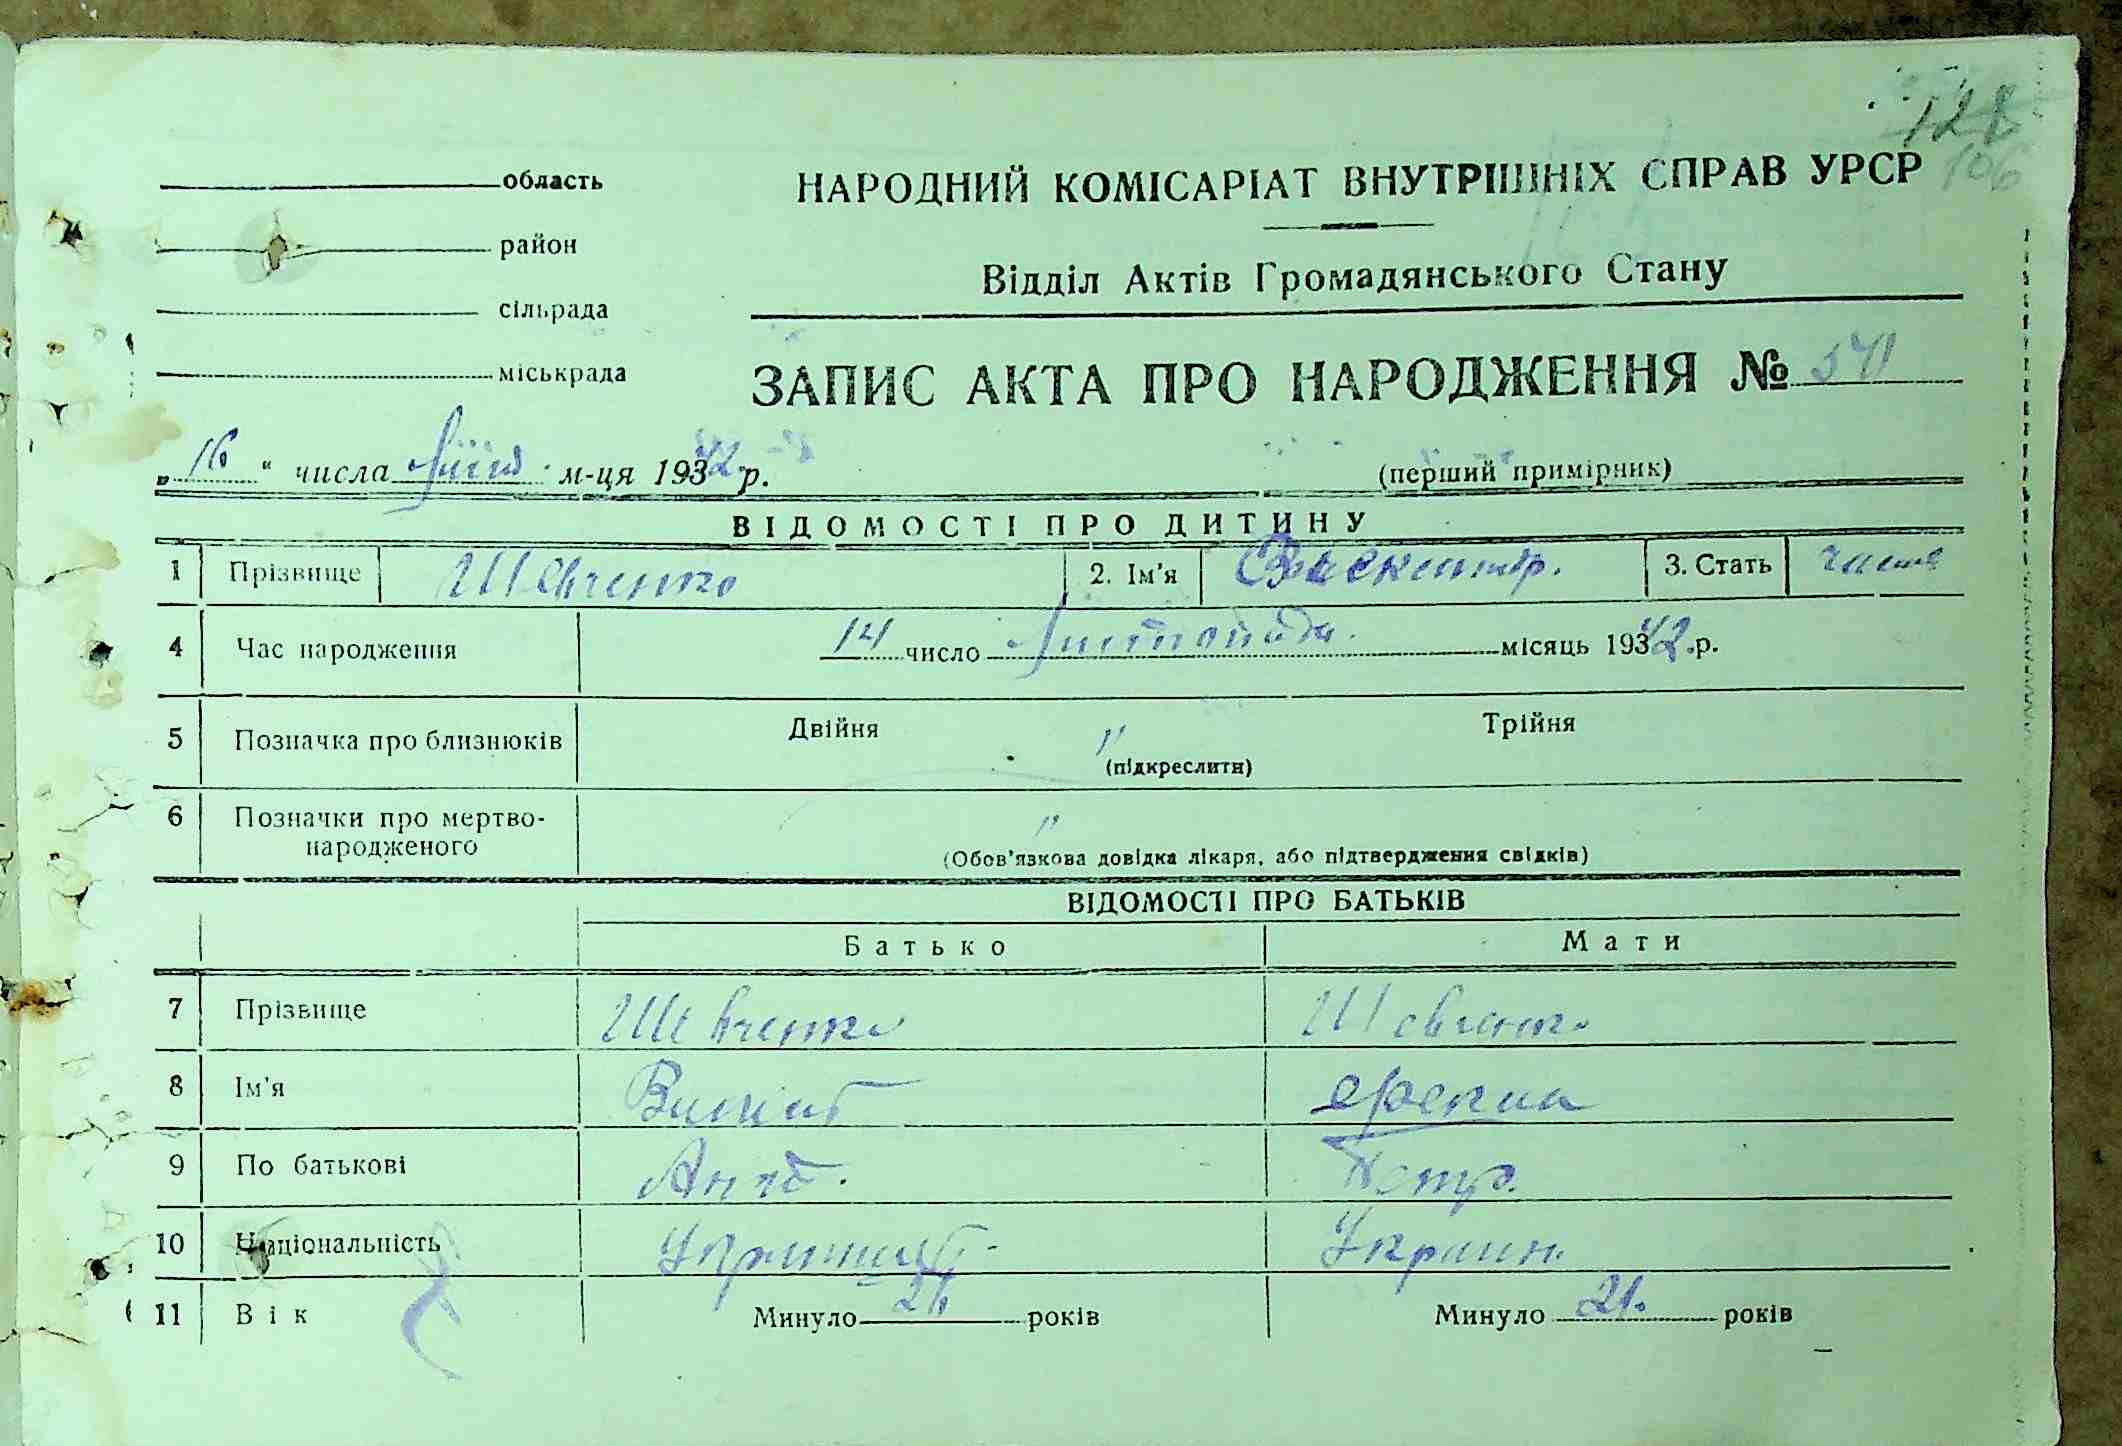 128
106
область
НАРОДНИЙ КОМІСАРІАТ ВНУТРІШНІХ СПРАВ УРСР
район
Відділ Актів Громадянського Стану
сільрада
міськрада
ЗАПИС АКТА ПРО НАРОДЖЕННЯ № 541
„16“ числа м-ця 1942 р.
(перший примірник)
ВІДОМОСТІ ПРО ДИТИНУ
1 Прізвище Шевченко 2. Ім'я 3. Стать
4 Час народження 14 число Листопада місяць 1942 р.
5 Позначка про близнюків Двійня " Трійня
(підкреслити)
6 Позначки про мертво-
народженого "
(Обов'язкова довідка лікаря, або підтвердження свідків)
ВІДОМОСТІ ПРО БАТЬКІВ
Батько Мати
7 Прізвище Шевченко Шевченко
8 Ім'я
9 По батькові Ант. Петр.
10 Національність Украин.
11 Вік Минуло 26 років Минуло 21. років